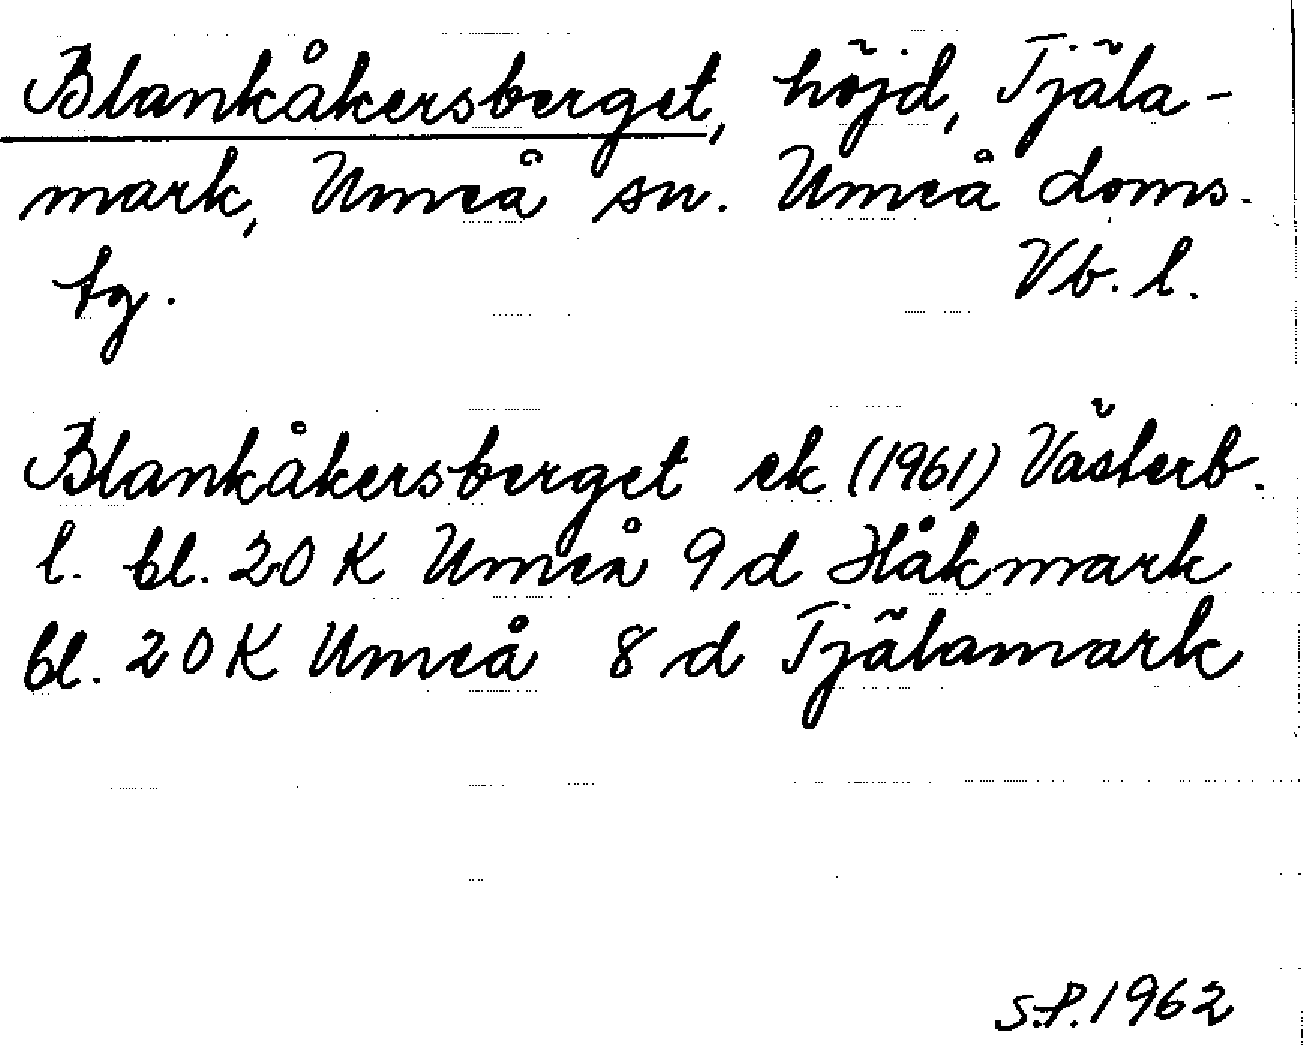 Blankåkersberget, höjd, Tjäla-
mark, Umeå sn. Umeå doms.
tg. Vb. l.
Blankåkersberget ek (1961) Västerb.
l. bl. 20 K Umeå 9 d Håkmark
bl. 20 K Umeå 8 d Tjälamark
S.P. 1962